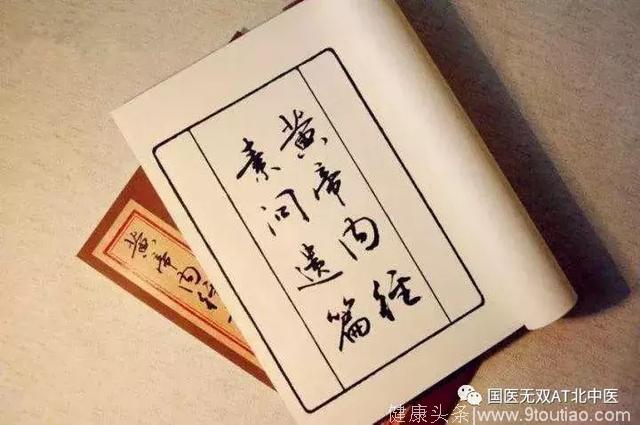 黄帝内经
素问遗篇
黄帝内经
国医无双AT北中医
健康头条
www.9toutiao.com